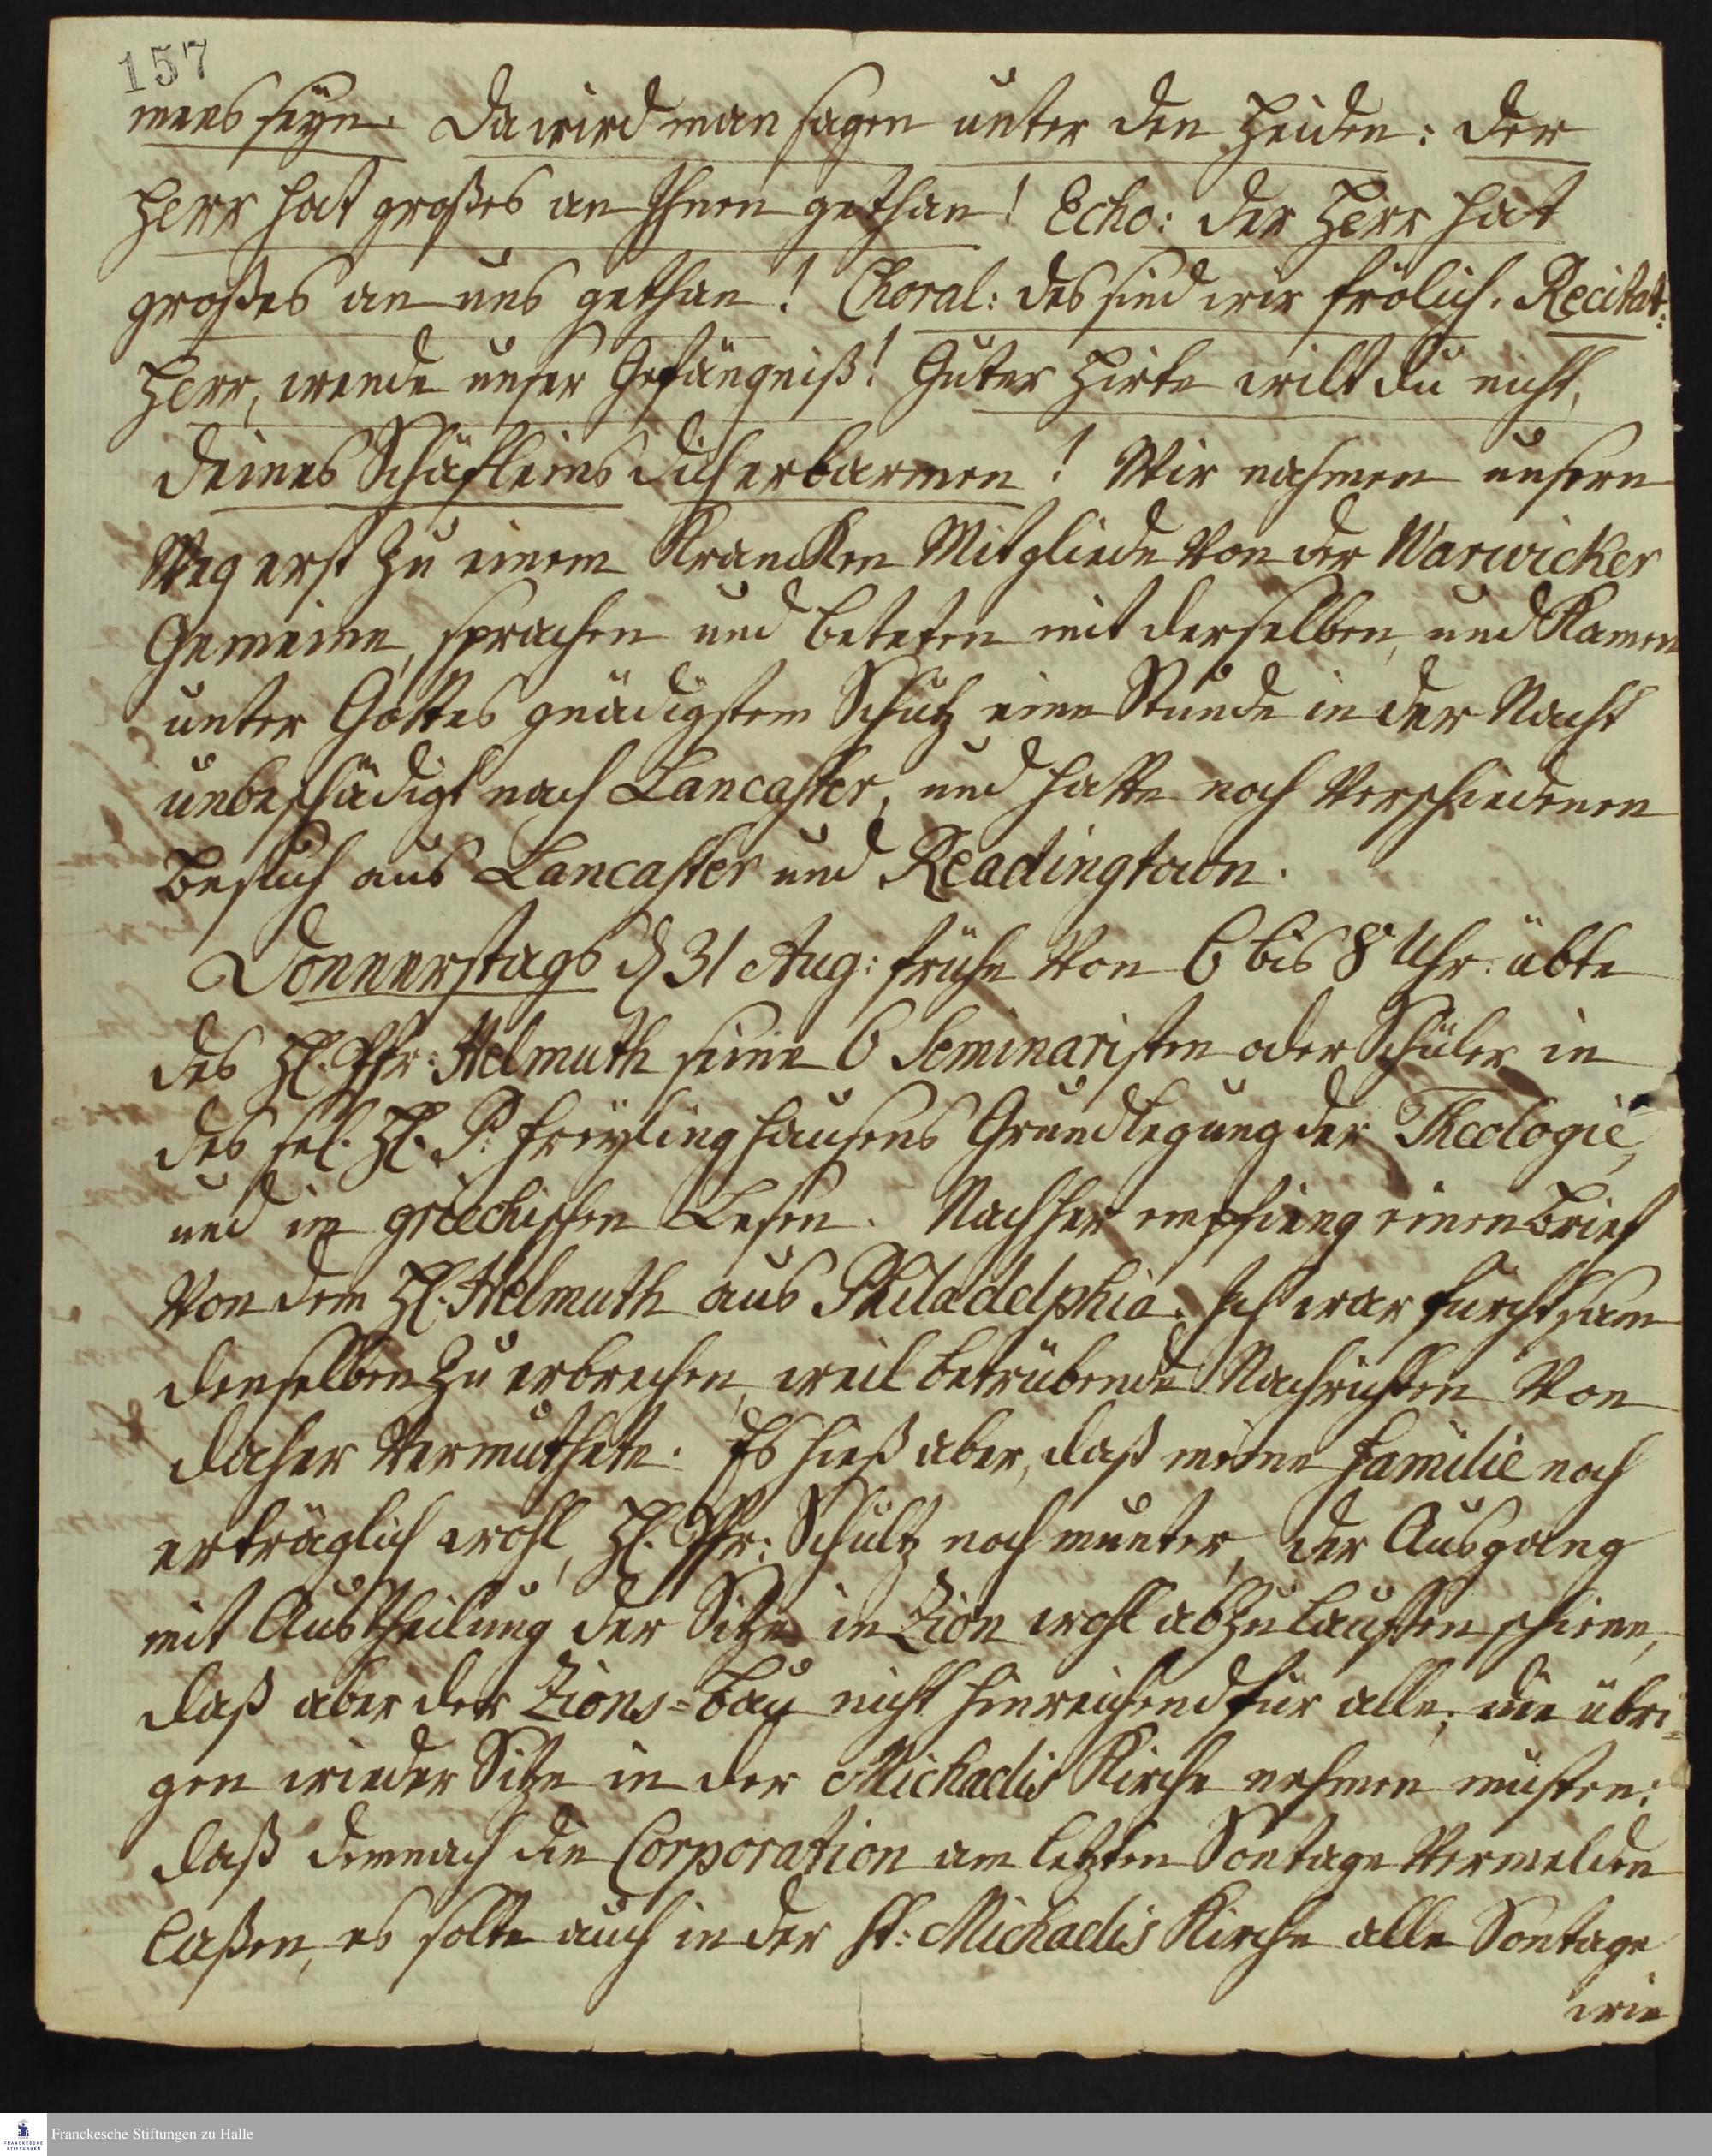 157
mens seyn. Da wird man sagen unter den Heiden: der
Herr hat großes an Ihnen gethan! Echo: der Herr hat
großes an uns gethan! Choral: des sind wir frölich. Recitat:
Herr, wende unser Gefängniß! Guter Hirte wilt du nicht,
deines Schäfleins dich erbarmen! Wir nahmen unsern
Weg erst zu einem Krancken Mitgliede von der Warwicker
Gemeine, sprachen und beteten mit derselben, und Kamen
unter Gottes gnädigstem Schutz eine Stunde in der Nacht
unbeschädigt nach Lancaster, und hatte noch verschiedenen
Besuch aus Lancaster und Readingtown.
Donnerstags d 31 Aug: frühe von 6 bis 8 Uhr übte
des H. Pfr: Helmuth seine 6 Seminaristen oder Schüler in
des sel. H. P. Freylinghausens Grundlegung der Theologie,
und im griechischen Lesen. Nachher empfieng einen Brief
von dem H. Helmuth aus Philadelphia. Ich war furchtsam
denselben zu erbrechen, weil betrübende Nachrichten von
daher vermuthete. Es hieß aber, daß meine Familie noch
erträglich wohl, H. Pfr: Schultz noch munter, der Ausgang
mit Austheilung der Sitze in Zion wohl abzulauffen schiene,
daß aber der Zions-Bau nicht hinreichend für alle; die übri=
gen wieder Sitze in der Michaelis Kirche nehmen müsten;
daß demnach die Corporation am letzten Sontage vermelden
laßen, es solte auch in der St: Michaelis Kirche alle Sontage
wie
Franckesche Stiftungen zu Halle